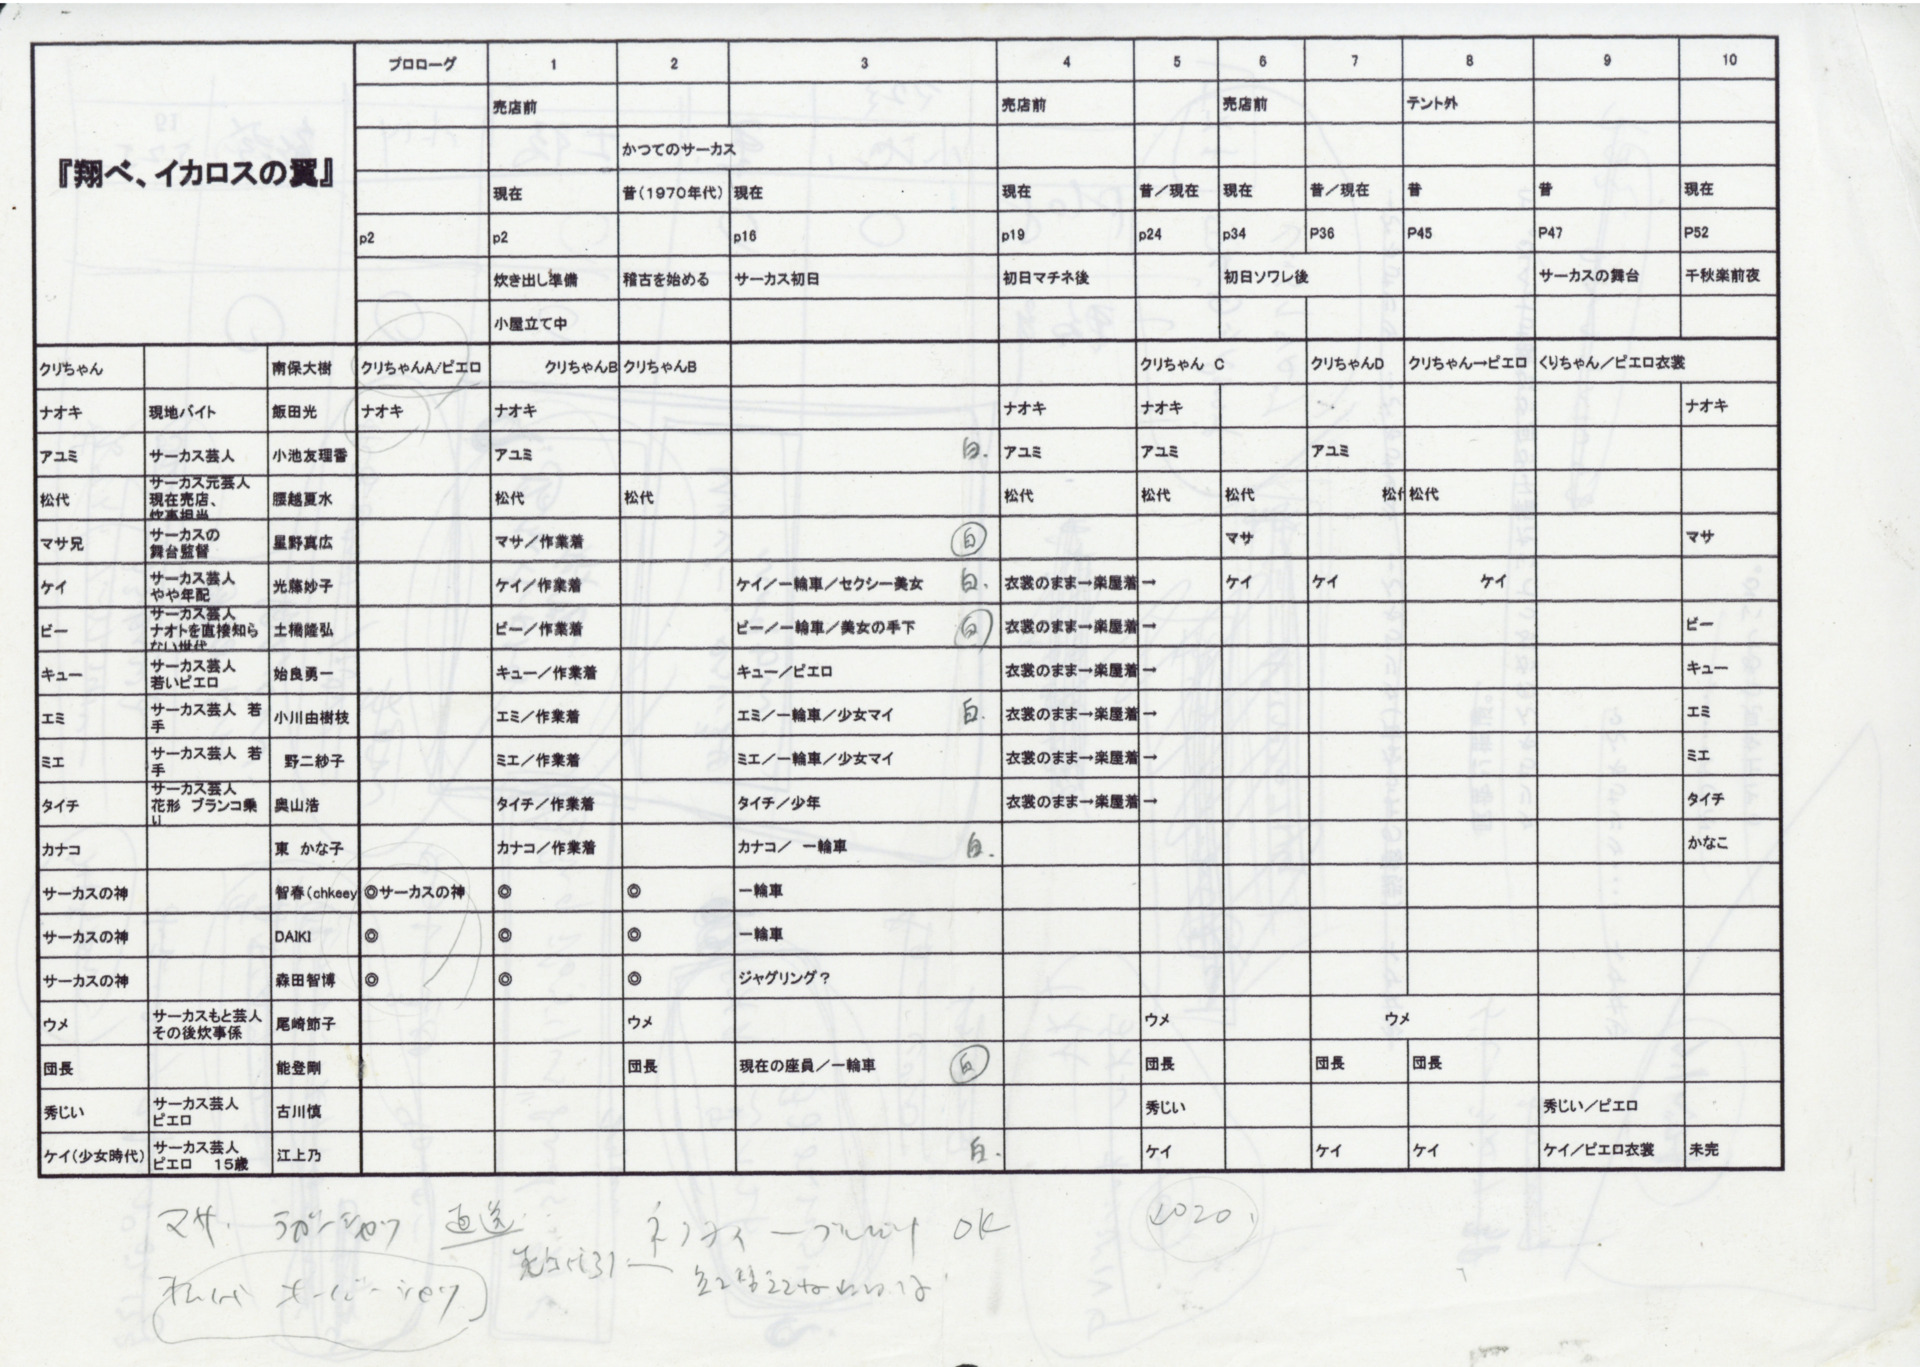 『翔べ、イカロスの翼』
プロローグ 1 2 3 4 5 6 7 8 9 10
売店前 売店前 売店前 テント外
かつてのサーカス
現在 昔(1970年代) 現在 現在 昔／現在 現在 昔／現在 昔 昔 現在
p2 p2 p16 p19 p24 p34 P36 P45 P47 P52
炊き出し準備 稽古を始める サーカス初日 初日マチネ後 初日ソワレ後 サーカスの舞台 千秋楽前夜
小屋立て中
クリちゃん 南保大樹 クリちゃんA/ピエロ クリちゃんB クリちゃんB クリちゃん C クリちゃんD クリちゃん→ピエロ くりちゃん／ピエロ衣裳
ナオキ 現地バイト 飯田光 ナオキ ナオキ ナオキ ナオキ ナオキ
アユミ サーカス芸人 小池友理香 アユミ 白. アユミ アユミ アユミ
松代 サーカス元芸人 現在売店、 炊事担当 腰越夏水 松代 松代 松代 松代 松代 松代
マサ兄 サーカスの 舞台監督 星野真広 マサ／作業着 白 マサ マサ
ケイ サーカス芸人 やや年配 光藤妙子 ケイ／作業着 ケイ／一輪車／セクシー美女 白. 衣裳のまま→楽屋着 → ケイ ケイ ケイ
ビー サーカス芸人 ナオトを直接知ら ない世代 土橋隆弘 ビー／作業着 ビー／一輪車／美女の手下 白 衣裳のまま→楽屋着 → ビー
キュー サーカス芸人 若いピエロ 始良勇一 キュー／作業着 キュー／ピエロ 衣裳のまま→楽屋着 → キュー
エミ サーカス芸人 若 手 小川由樹枝 エミ／作業着 エミ／一輪車／少女マイ 白. 衣裳のまま→楽屋着 → エミ
ミエ サーカス芸人 若 手 野二紗子 ミエ／作業着 ミエ／一輪車／少女マイ 衣裳のまま→楽屋着 → ミエ
タイチ サーカス芸人 花形 ブランコ乗 り 奥山浩 タイチ／作業着 タイチ／少年 衣裳のまま→楽屋着 → タイチ
カナコ 東 かな子 カナコ／作業着 カナコ／ 一輪車 白. かなこ
サーカスの神 智春(chkeey ◎サーカスの神 ◎ ◎ 一輪車
サーカスの神 DAIKI ◎ ◎ ◎ 一輪車
サーカスの神 森田智博 ◎ ◎ ◎ ジャグリング？
ウメ サーカスもと芸人 その後炊事係 尾崎節子 ウメ ウメ ウメ
団長 能登剛 団長 現在の座員／一輪車 白 団長 団長 団長
秀じい サーカス芸人 ピエロ 古川慎 秀じい 秀じい／ピエロ
ケイ(少女時代) サーカス芸人 ピエロ 15歳 江上乃 白. ケイ ケイ ケイ ケイ／ピエロ衣裳 未完
マサ. 直送 OK 2020.
オーバーシャツ